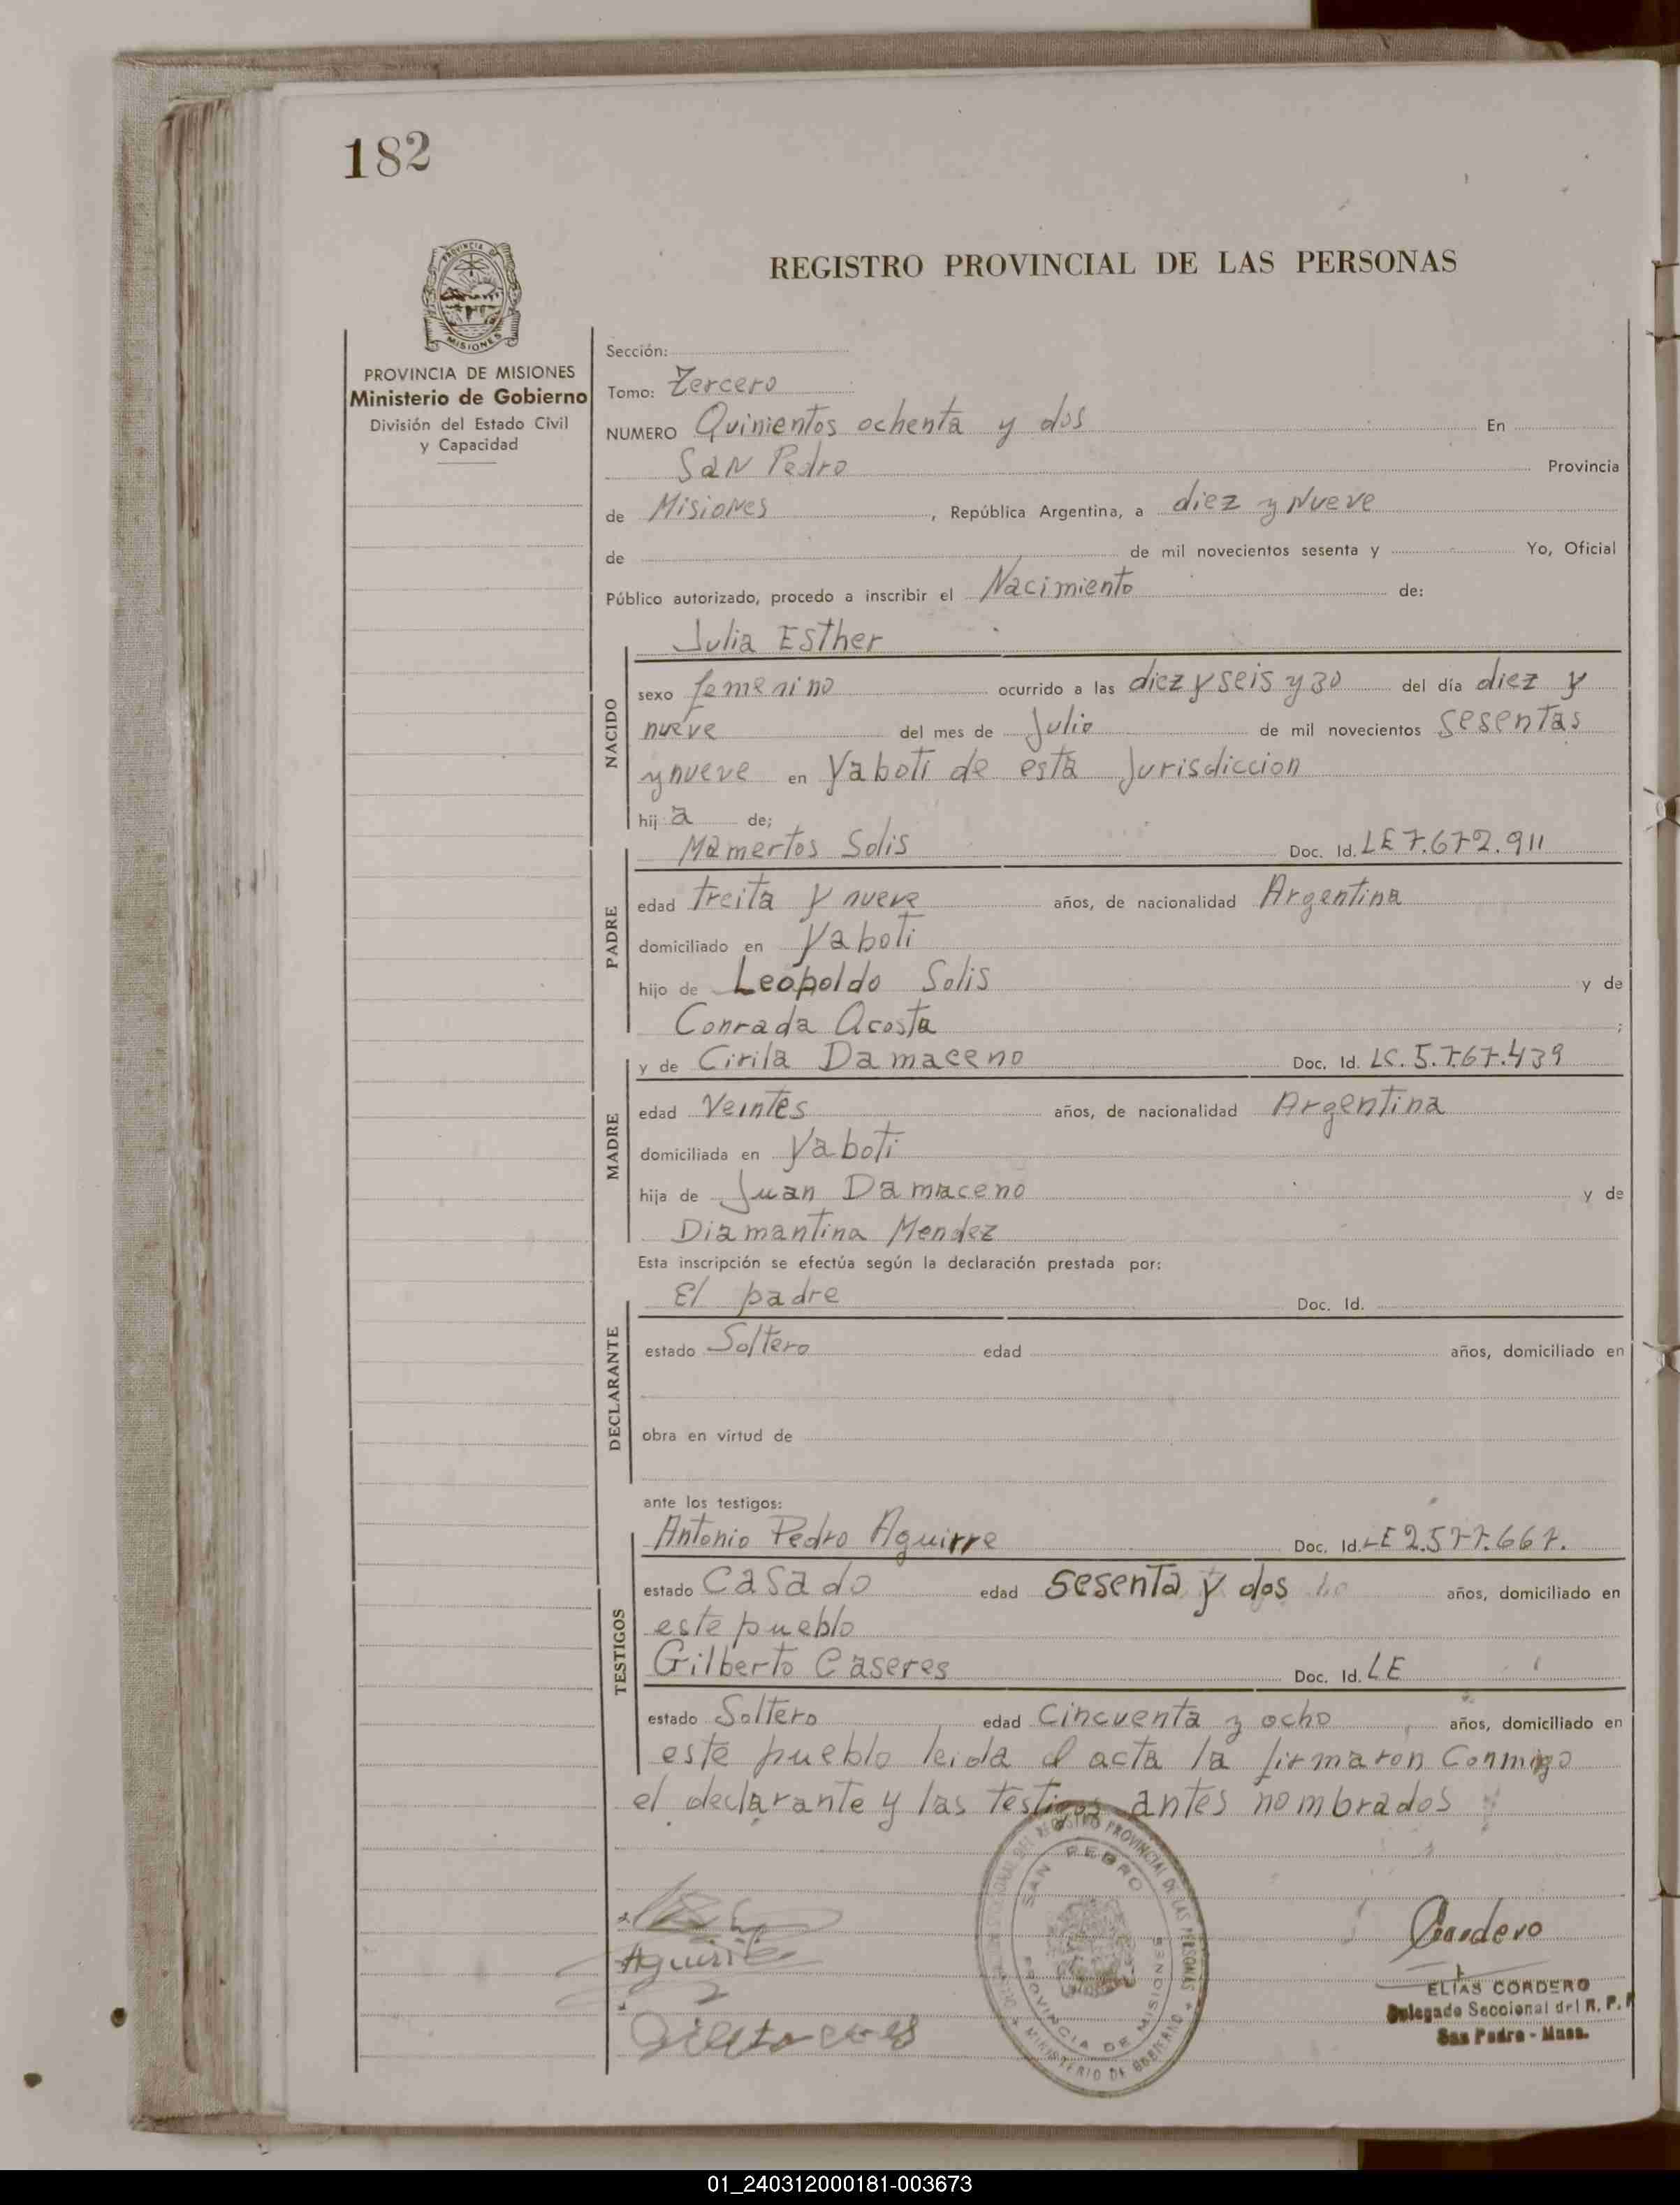 182
PROVINCIA DE MISIONES
PROVINCIA DE MISIONES
Ministerio de Gobierno
División del Estado Civil
y Capacidad
REGISTRO PROVINCIAL DE LAS PERSONAS
Sección:
Tomo: Tercero
NUMERO Quinientos ochenta y dos En
San Pedro Provincia
de Misiones, República Argentina, a diez y Nueve
de de mil novecientos sesenta y Yo, Oficial
Público autorizado, procedo a inscribir el Nacimiento de:
NACIDO
Julia Esther
sexo femenino ocurrido a las diez y seis y 30 del día diez y
nueve del mes de Julio de mil novecientos sesentas
y nueve en Yaboti de esta Jurisdiccion
hij a de;
PADRE
Mamertos Solis Doc. Id. LE 7.672.911
edad treita y nueve años, de nacionalidad Argentina
domiciliado en Yaboti
hijo de Leopoldo Solis y de
Conrada Acosta ;
MADRE
y de Cirila Damaceno Doc. Id. LC. 5.767.439
edad Veintes años, de nacionalidad Argentina
domiciliada en Yaboti
hija de Juan Damaceno y de
Diamantina Mendez
Esta inscripción se efectúa según la declaración prestada por:
DECLARANTE
El padre Doc. Id.
estado Soltero edad años, domiciliado en
obra en virtud de
ante los testigos:
TESTIGOS
Antonio Pedro Aguirre Doc. Id. LE 2.577.667.
estado Casado edad sesenta y dos años, domiciliado en
este pueblo
Gilberto Caseres Doc. Id. LE
estado Soltero edad Cincuenta y ocho años, domiciliado en
este pueblo leida el acta la firmaron Conmigo
el declarante y las testigos antes nombrados
REGISTRO PROVINCIAL DE LAS PERSONAS
SAN PEDRO
PROVINCIA DE MISIONES
MINISTERIO DE GOBIERNO
Aguirre
Cordero
ELIAS CORDERO
Delegado Seccional del R. P. P
San Pedro - Mnes.
01_240312000181-003673